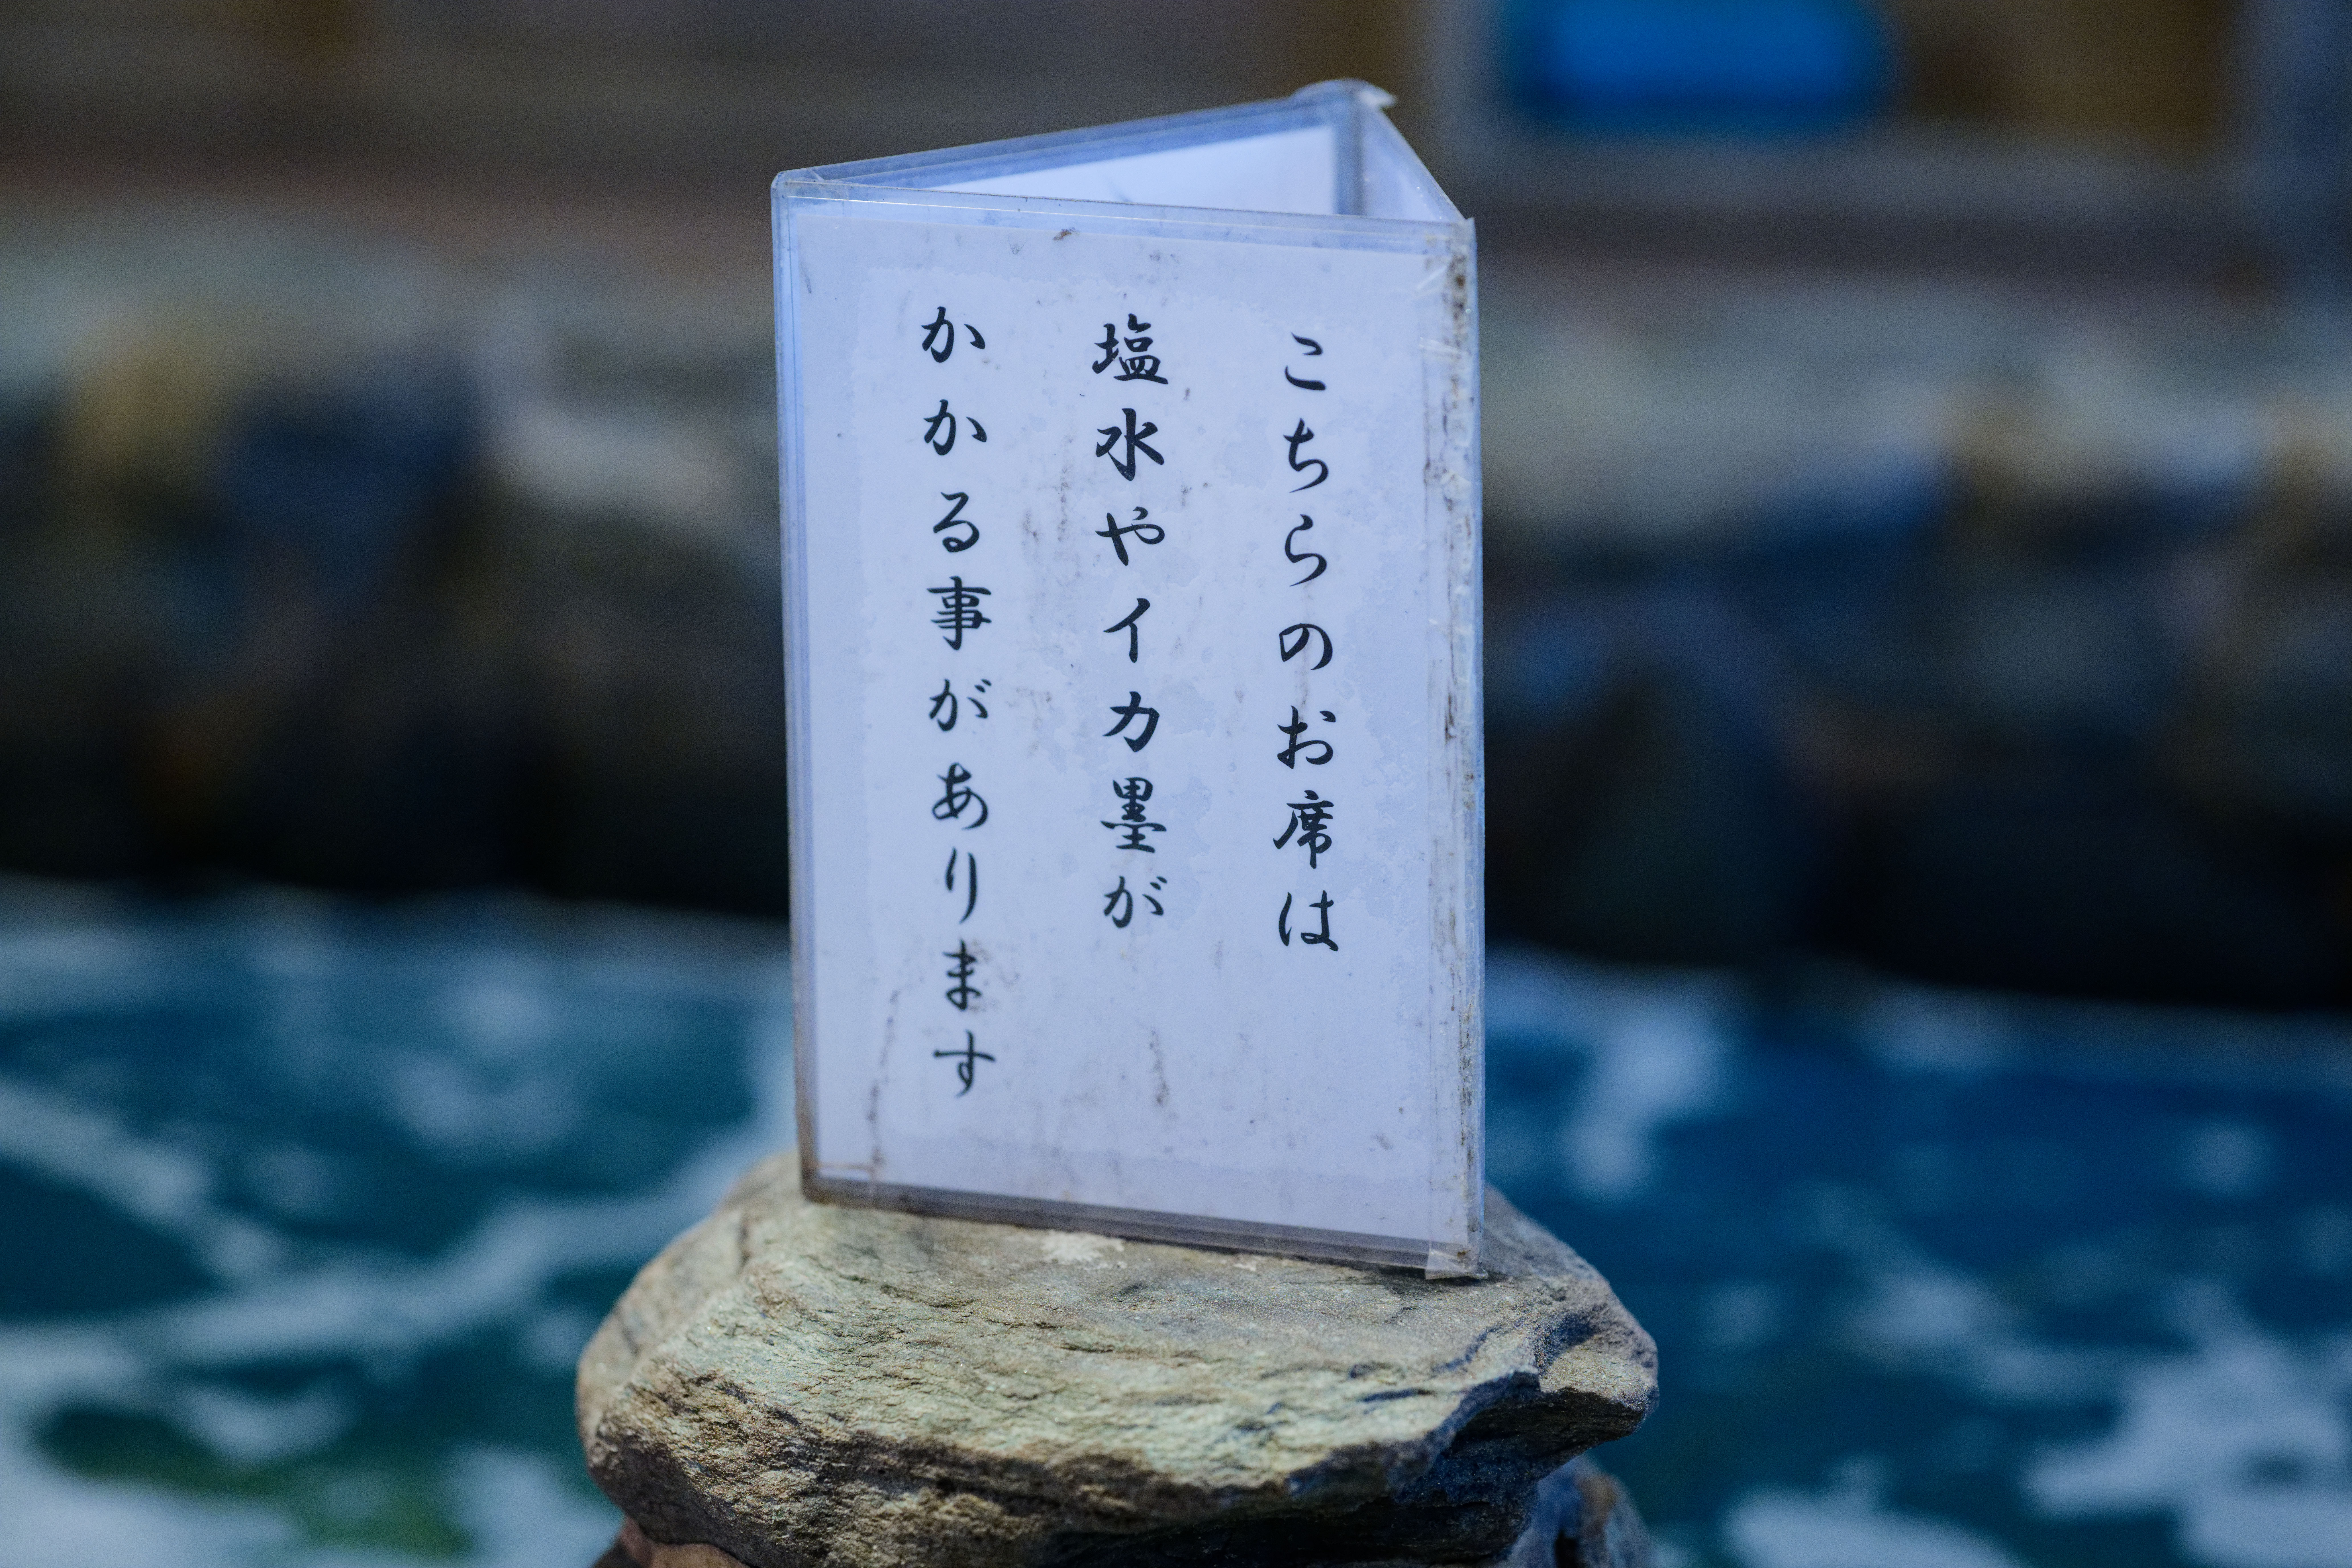 こちらのお席は
塩水やイカ墨が
かかる事があります